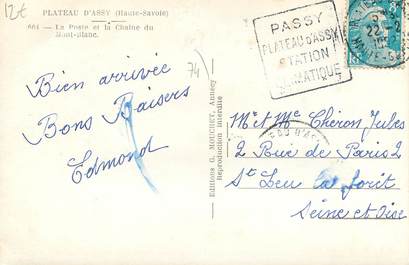 12€
PLATEAU D'ASSY (Haute-Savoie)
664 - La Poste et la Chaîne du
Mont-Blanc.
74)
Bien arrivée
Bons Baisers
Edmond
Editions G. MOUCHET, Annecy
Reproduction interdite
PASSY
PLATEAU D'ASSY
STATION
CLIMATIQUE
Mr et Me Chéron Jules
2 Rue de Paris 2
St Leu la forêt
Seine et Oise